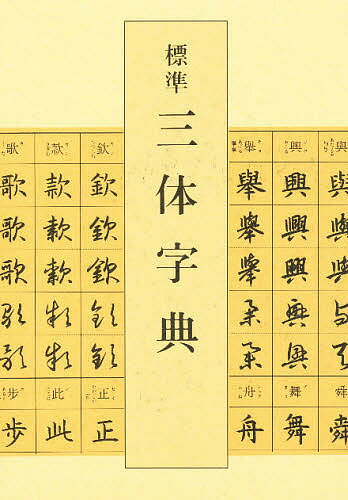 標準
三体字典
與 興 舉
與 興 舉
與 興 舉
與 興 舉
與 興 舉
與 興 舉
舜 舞 舟
舜 舞 舟
欽 款 歌
欽 款 歌
欽 款 歌
欽 款 歌
欽 款 歌
欽 款 歌
正 此 步
正 此 步